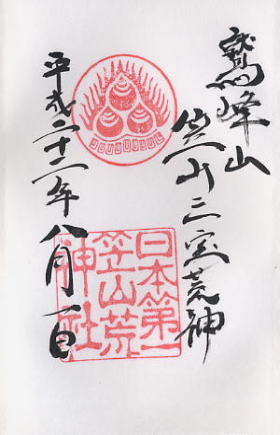 鷲峰山
笠山三宝荒神
平成二十二年八月一日
日本第一
笠山荒
神社